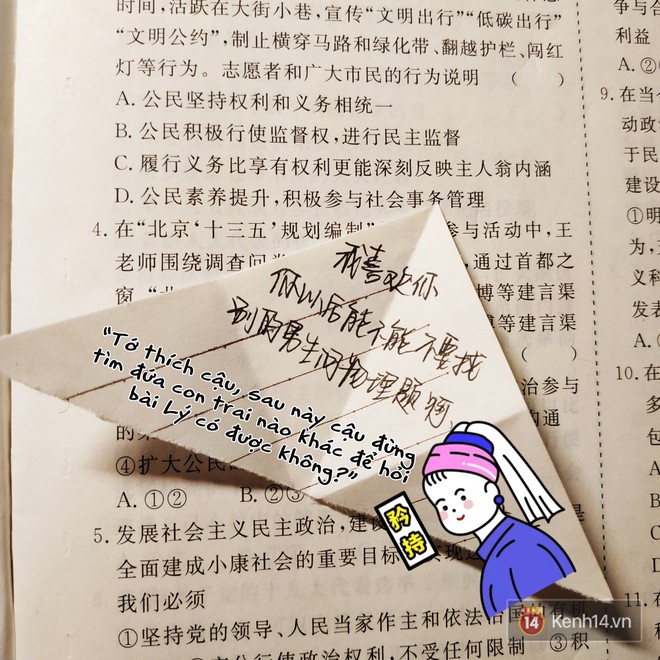 时间,活跃在大街小巷,宣传“文明出行”“低碳出行”
“文明公约”,制止横穿马路和绿化带、翻越护栏、闯红
灯等行为。志愿者和广大市民的行为说明 ( )
A. 公民坚持权利和义务相统一
B. 公民积极行使监督权,进行民主监督
C. 履行义务比享有权利更能深刻反映主人翁内涵
D. 公民素养提升,积极参与社会事务管理
4. 在“北京‘十三五’规划编制”
参与活动中,王
老师围绕调查问
通过首都之
窗
博等建言渠
等建言
( )
治参与
的通
④扩大公民
A. ①② B. ②③
5. 发展社会主义民主政治,建设
是
全面建成小康社会的重要目标
我们必须
①坚持党的领导、人民当家作主和依法治国
有机
行使政治权利,不受任何限制 ③积
我喜欢你
你以后能不能不要找
别的男生问物理题啊
“Tớ thích cậu, sau này cậu đừng
tìm đứa con trai nào khác để hỏi
bài Lý có được không?”
矜持
争与合
利益
A. ②
9. 在当
动政
于民
建设
①明
为,
义科
发表
A. ①
10. 在
多
包
A
11. 在
14 Kenh14.vn